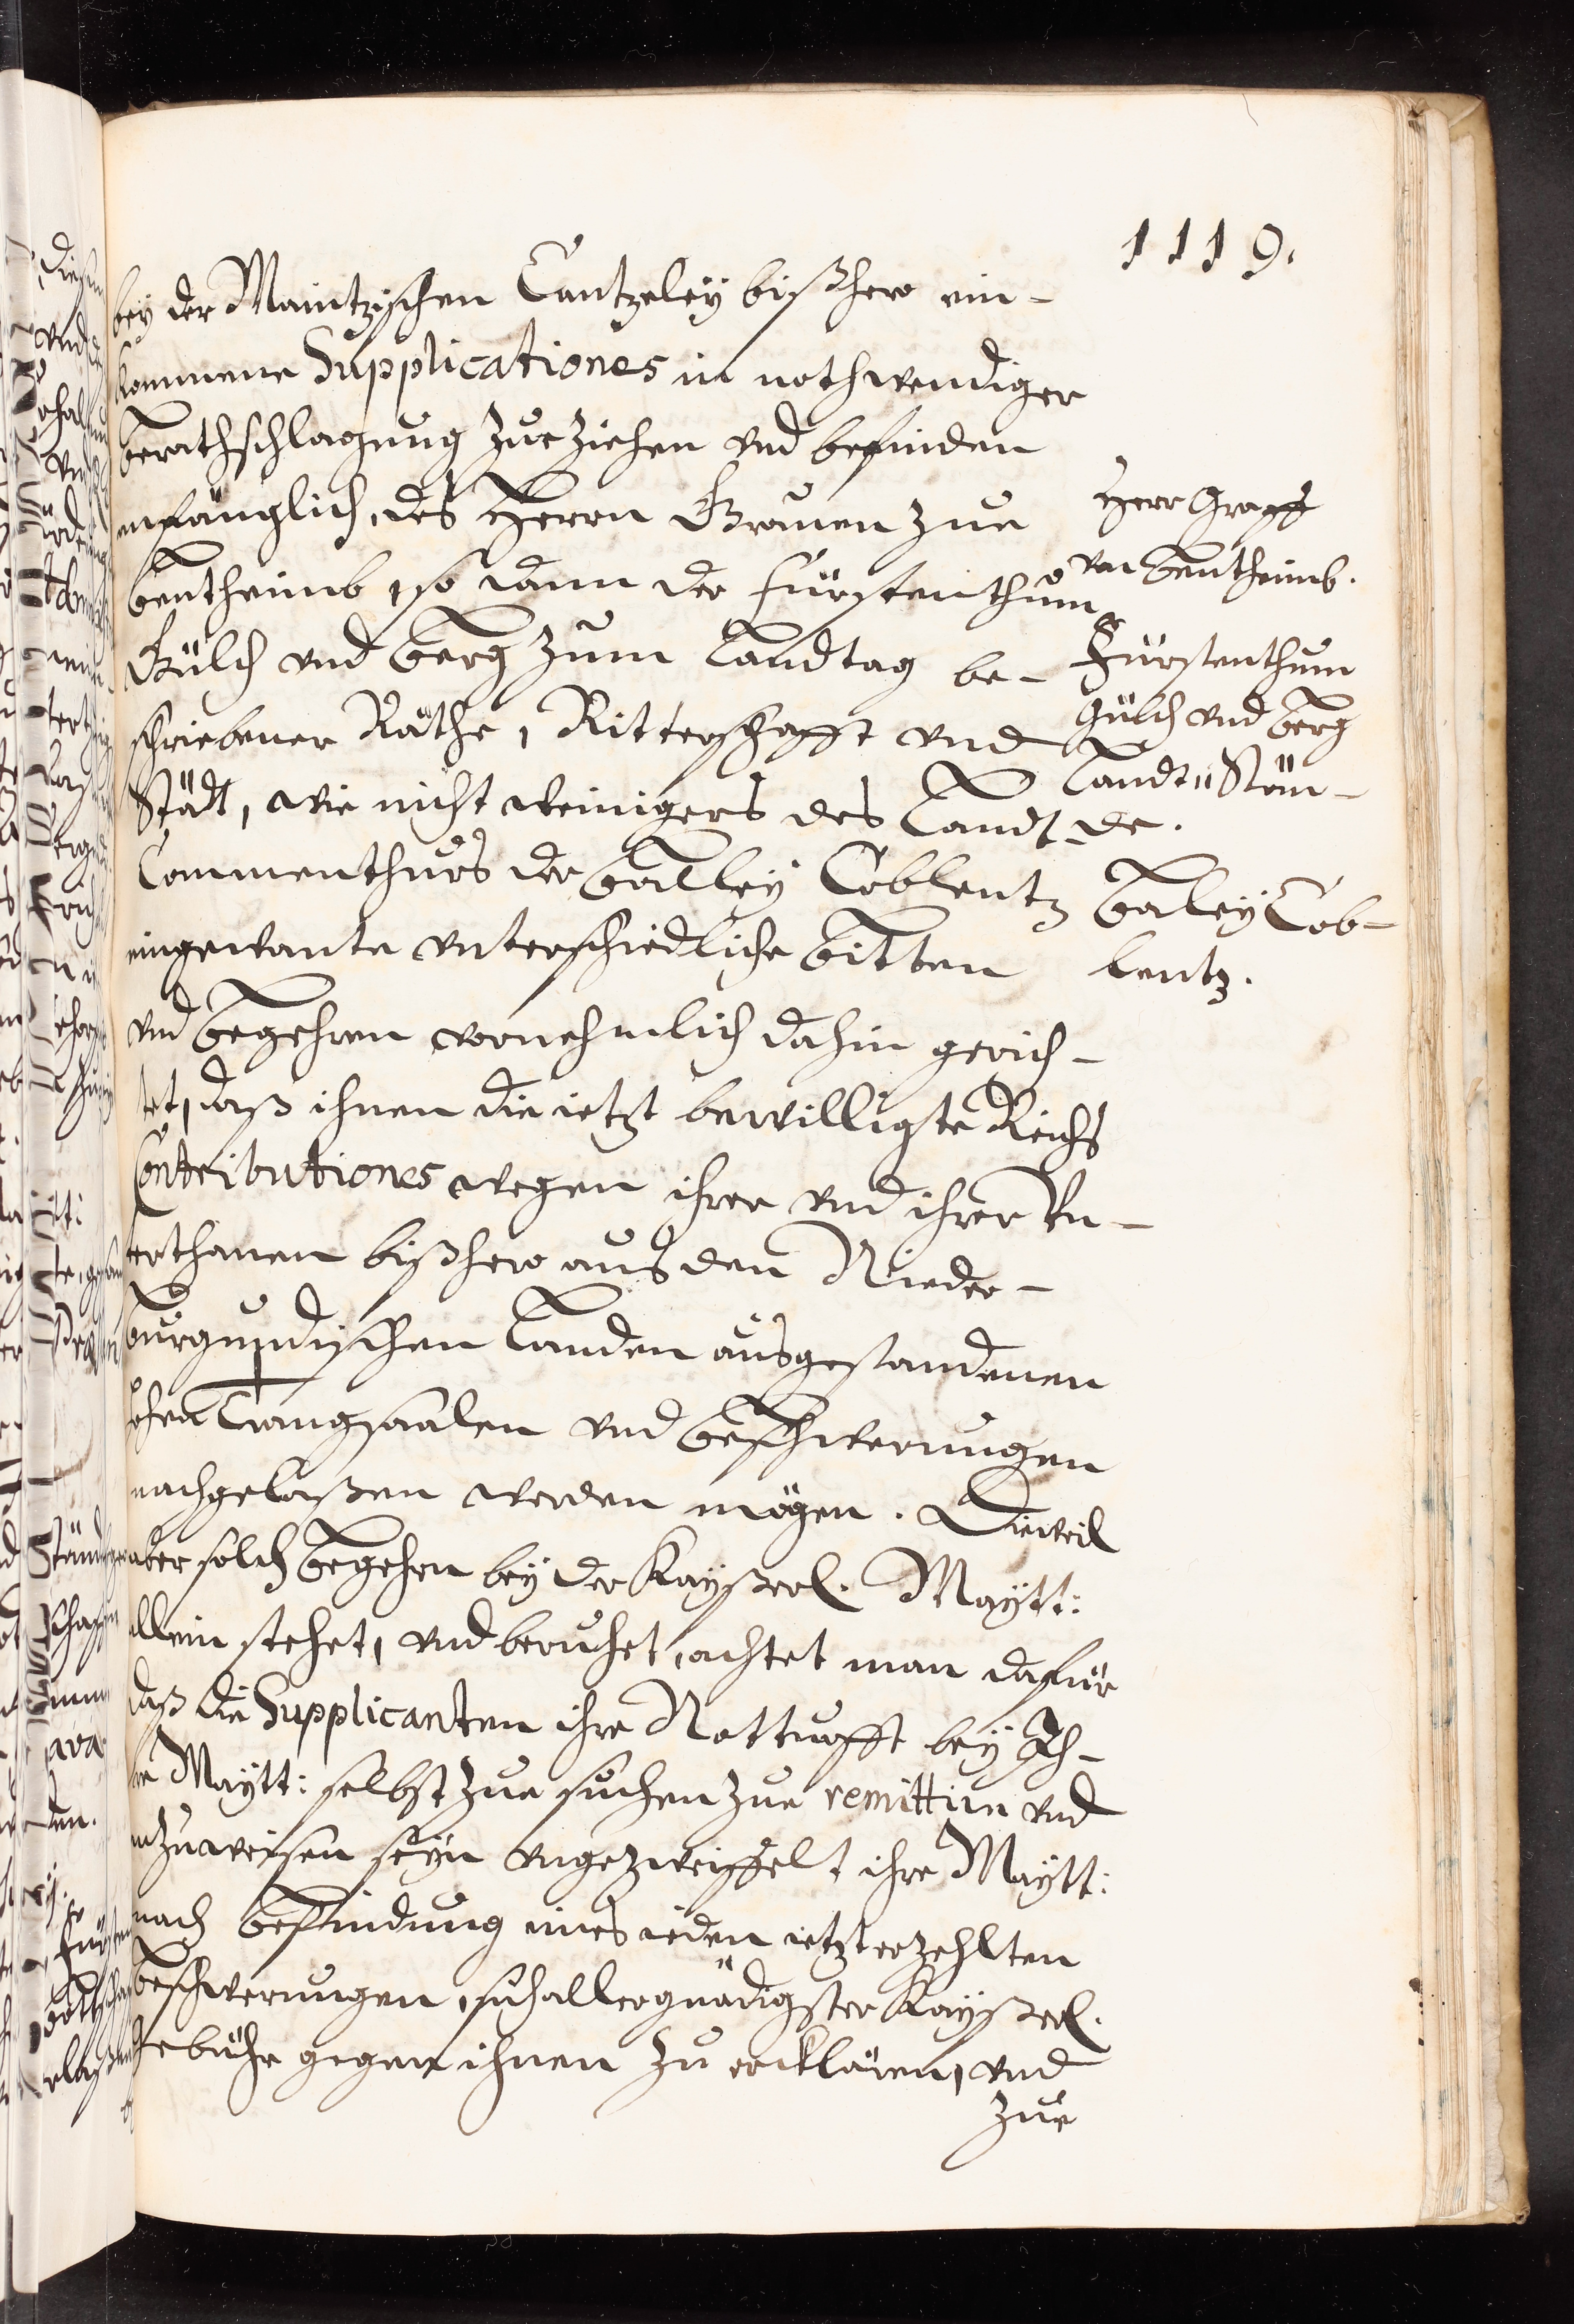 1119.
bey der Maintzischen Cantzeley bißhero ein-
kommene Supplicationes in nothwendiger
berathschlagung zue ziehen vnd befinden
anfänglich, des Herrn Grauen zue
Bentheimb, so dann der Fürstenthumb
Gülch vnd Berg zum Landtag be-
schriebener Räthe, Ritterschafft vnd
Städt, wie nicht weinigers des Landt
Commenthurs der Balley Coblentz
eingewante vnterschiedliche Bitten
vnd Begehren vornehmlich dahin gerich-
tet, daß ihnen die ietzt bewilligte Reichs
Contributiones wegen ihrer vnd ihrer Vn-
terthanen bißhero aus den Nieder-
burgundischen Landen ausgestandenen
hohen Trangsaalen vnd Beschwerungen
nachgelaßen werden mögen. Dieweil
aber solch Begehren bey der Kayßerl. Maytt:
allein stehet, vnd beruhet, achtet man dafür
daß die Supplicanten ihre Notturfft bey Ih-
re Maytt: selbst zue suchen zue remittirn vnd
anzuweisen seyn vngezweiffelt ihre Maytt:
nach Befindung eines ieden ietzterzehlten
Beschwerungen, sich allergnädigster Kayßerl.
gebühr gegen ihnen zu erklären, vnd
zue
Herr Graff
von Bentheimb.
Fürstenthum
Gülch vnd Berg
Landt Stän-
de.
Baley Cob-
lentz.